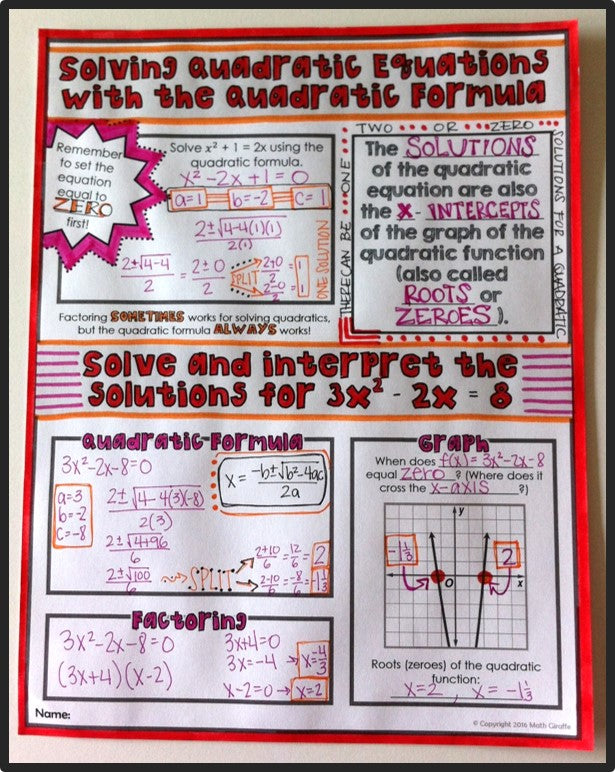 Solving Quadratic Equations
with the Quadratic Formula
Remember
to set the
equation
equal to
ZERO
first!
Solve x² + 1 = 2x using the
quadratic formula.
x² -2x +1 = 0
a=1 b=-2 c=1
2±√4-4(1)(1)
2(1)
2±√4-4
2
= 2±0
2
SPLIT
2+0
2
= 1
2-0
2
= 1
ONE SOLUTION
Factoring SOMETIMES works for solving quadratics,
but the quadratic formula ALWAYS works!
THERE CAN BE ONE
TWO OR ZERO
SOLUTIONS FOR A QUADRATIC
The SOLUTIONS
of the quadratic
equation are also
the X- INTERCEPTS
of the graph of the
quadratic function
(also called
ROOTS or
ZEROES ).
Solve and interpret the
solutions for 3x² - 2x = 8
Quadratic Formula
3x²-2x-8=0
a=3
b=-2
c=-8
x = -b±√b²-4ac
2a
2±√4-4(3)(-8)
2(3)
2±√4+96
6
2±√100
6
SPLIT
2+10
6
= 12
6
= 2
2-10
6
= -8
6
= -1 1/3
Factoring
3x²-2x-8=0
(3x+4)(x-2)
3x+4=0
3x=-4 → x=-4/3
x-2=0 → x=2
Graph
When does f(x) = 3x²-2x-8
equal zero ? (Where does it
cross the x-axis ?)
y
-1 1/3
2
O
x
Roots (zeroes) of the quadratic
function:
x=2 , x = -1 1/3
Name:
© Copyright 2016 Math Giraffe